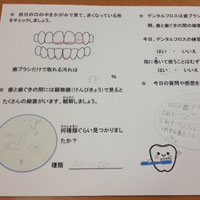 ☆ 自分の口の中をかがみで見て、赤くなっている所
をチェックしましょう。
歯ブラシだけで取れる汚れは
☆ 歯と歯ぐきの間には顕微鏡(けんびきょう)で見ると
たくさんの細菌がいます。観察しましょう。
何種類ぐらい見つかりまし
たか?
種類
☆ デンタルフロスは歯ブラシ
間、歯と歯ぐきの間の
今日、デンタルフロスの練習
はい ・ いいえ
指に巻いて使うことはむず
はい ・ いいえ
☆ 今日の質問や感想を